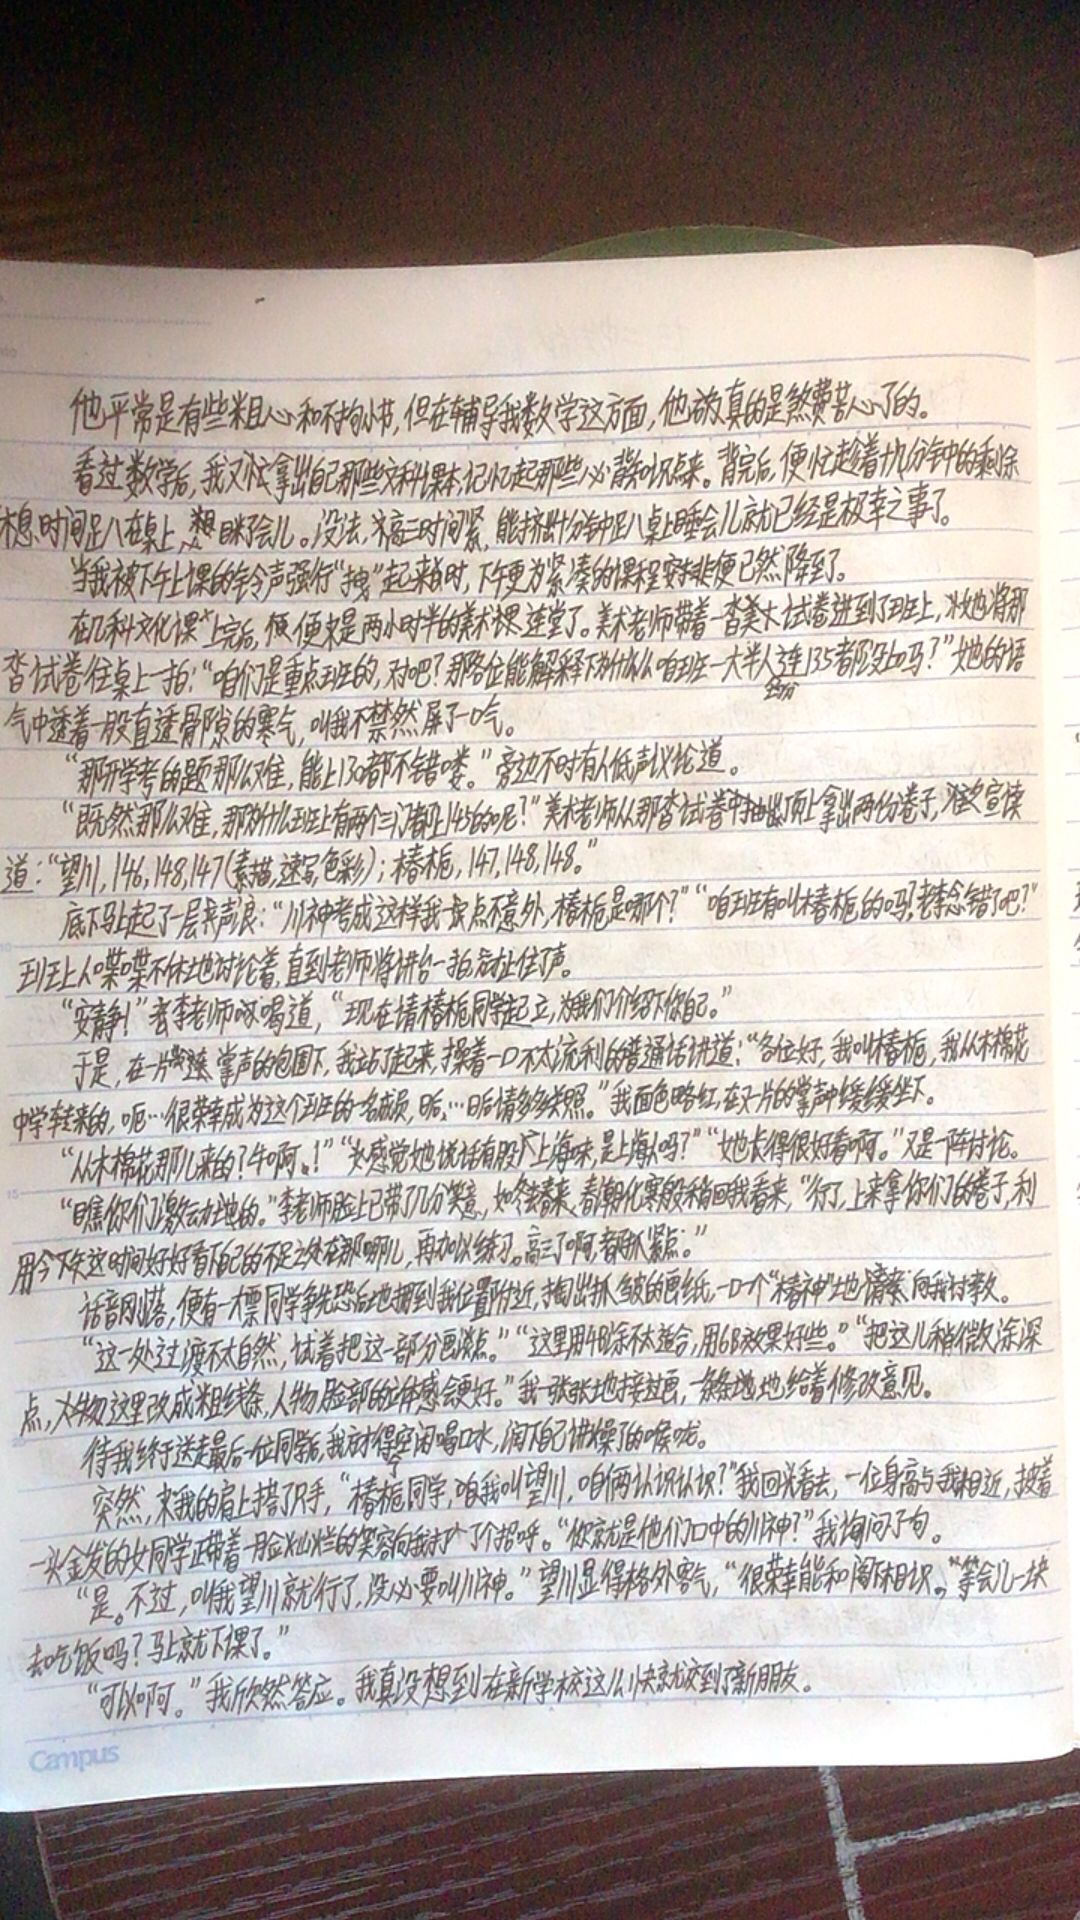 他平常是有些粗心和不拘小节，但在辅导我数学这方面，他放真的是煞费苦心了的。
看过数学后，我又忙拿出自己那些文科课本，记忆起那些必背知识点来。背完后，便忙趁着十几分钟的剩余
休息时间趴在桌上，眯了会儿。没法，高三时间紧，能挤出十分钟趴桌上睡会儿就已经是极幸之事了。
当我被下午上课的铃声强行“拽”起来时，下午更为紧凑的课程安排便已然降到了。
在几科文化课上完后，便来是两小时半的美术课连堂了。美术老师带着一沓美术试卷进到了班上，她将那
沓试卷往桌上一拍：“咱们是重点班的，对吧？那各位能解释下为什么咱班一大半人连135都没上吗？”她的语
气中透着一股直透骨隙的寒气，叫我不禁然屏了一口气。
“那开学考的题那么难，能上130都不错喽。”旁边不时有人低声议论道。
“既然那么难，那为什么班上有两个三门都上145的呢？”美术老师从那沓试卷中抽出顶上拿出两份卷子，准次宣读
道：“望川，146，148，147（素描，速写，色彩）；椿栀，147，148，148。”
底下马上起了一层声浪：“川神考成这样我一点不意外，椿栀是哪个？”“咱班有叫椿栀的吗？老李念错了吧？”
班上人喋喋不休地讨论着，直到老师将讲台一拍，方止住了声。
“安静！”李老师呵喝道，“现在请椿栀同学起立，为我们介绍下你自己。”
于是，在一片掌声的包围下，我站了起来，操着一口不太流利的普通话讲道：“各位好，我叫椿栀，我从木棉花
中学转来的，呃…很荣幸成为这个班的一名成员，呃…日后请多多关照。”我面色略红，在又一片的掌声中缓缓坐下。
“从木棉花那儿来的？牛啊！”“感觉她说话有股上海味，是上海人吗？”“她长得很好看啊。”又是一阵讨论。
“瞧你们激动地的。”李老师脸上已带了几分笑意，如冬去春来，春朝化寒般稍回我看来，“行了，上来拿你们的卷子，利
用今下午这时间好好看下自己的不足之处在那哪儿，再加以练习。高三了啊，都抓紧点。”
话音刚落，便有一大票同学争先恐后地拥到我位置附近，掏出抓皱的画纸，一口一个“椿神”地向我讨教。
“这一处过渡不太自然，试着把这一部分画淡点。”“这里用4B涂不太适合，用6B效果好些。”“把这儿稍微涂深
点，人物这里改成粗线条，人物脸部的立体感会更好。”我一张张地接过画，一条条地给着修改意见。
待我终于送走最后一位同学后，我方才得空闲喝口水，润下自己讲燥了的喉咙。
突然，我的肩上搭了只手，“椿栀同学，我叫望川，咱俩认识认识？”我回头看去，一位身高与我相近，披着
一头金发的女同学正带着一脸灿烂的笑容向我打了个招呼。“你就是他们口中的川神？”我询问了句。
“是。不过，叫我望川就行了，没必要叫川神。”望川显得格外客气，“很荣幸能和阁下相识，”“等会儿一块
去吃饭吗？马上就下课了。”
“可以啊。”我欣然答应。我真没想到在新学校这么快就交到了新朋友。
Campus